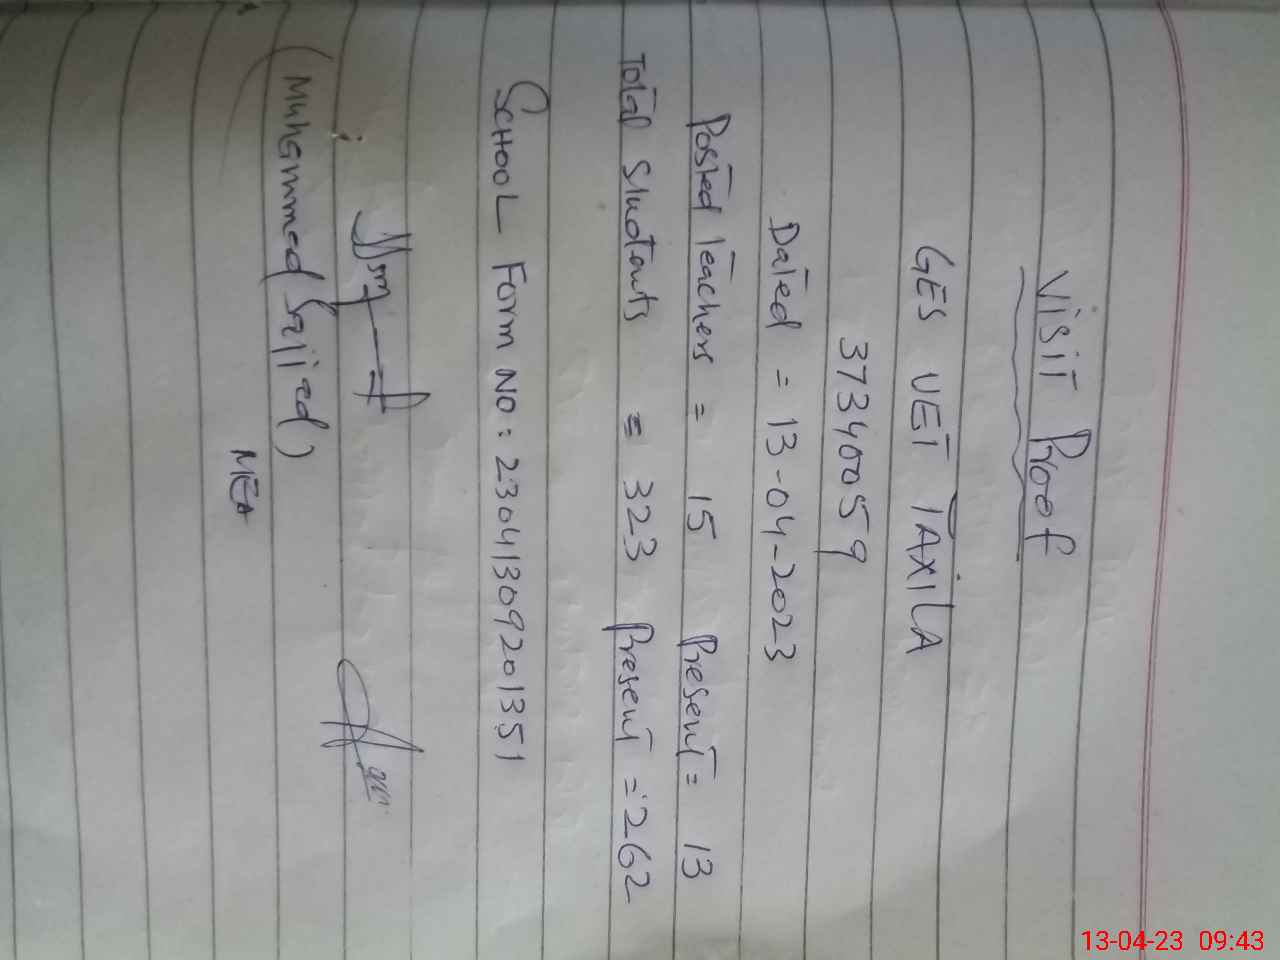 Visit Proof
GES UET TAXILA
37340059
Dated = 13-04-2023
Posted Teachers = 15 Present = 13
Total Students = 323 Present = 262
SCHOOL Form No: 23041309201351
(Muhammad Sajjad)
MEA
13-04-23 09:43